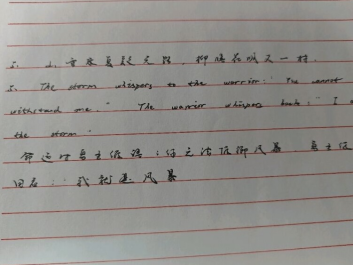 1. 山重水复疑无路，柳暗花明又一村.
2. The storm whispers to the warrior: "You cannot
withstand me." The warrior whispers back: "I a
the storm."
命运对勇士低语：你无法抵御风暴. 勇士低
回应：我就是风暴